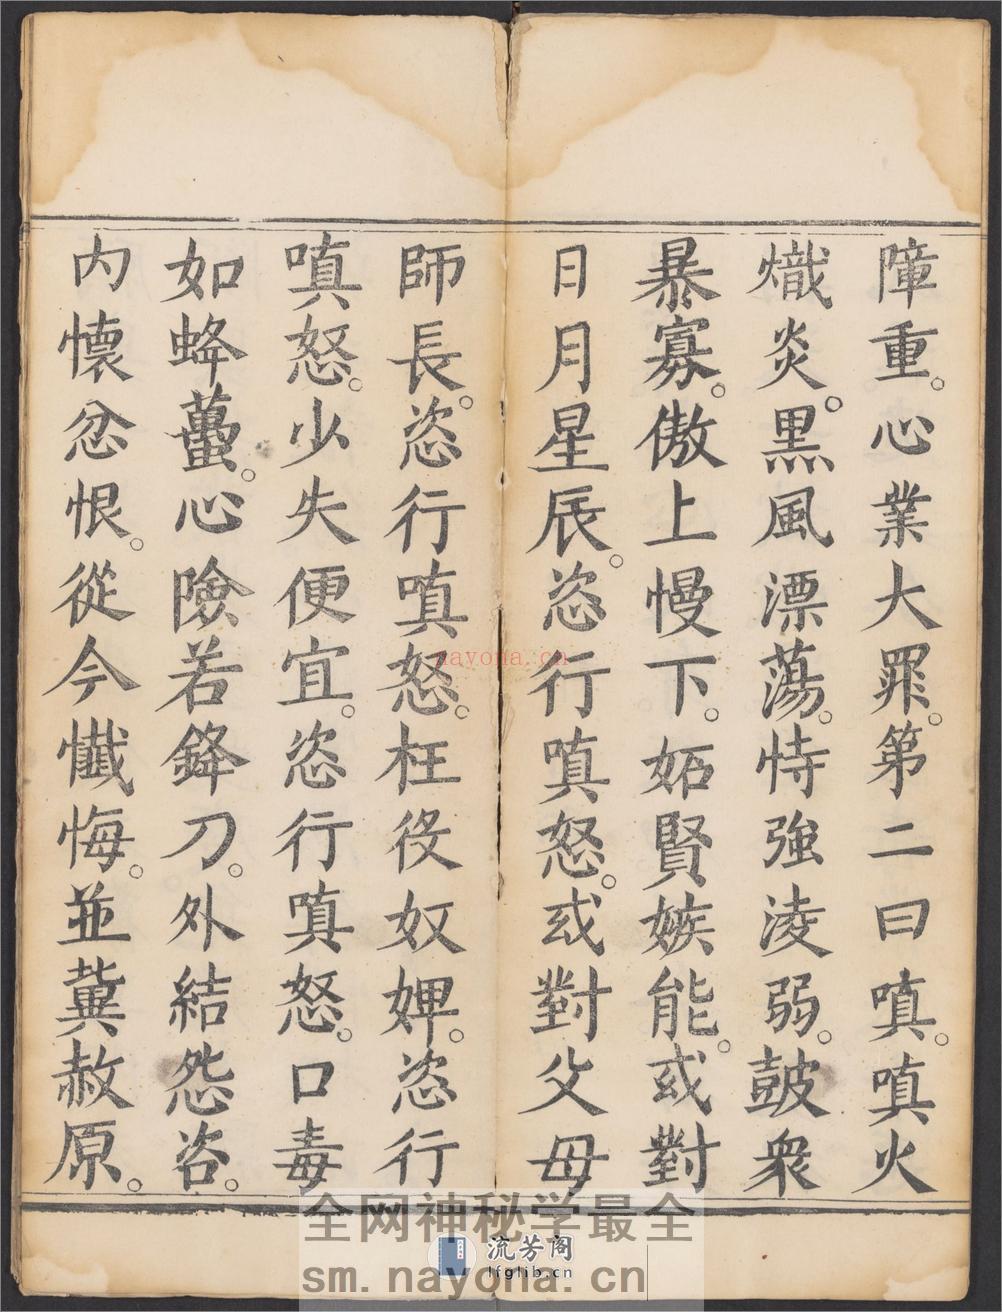 障重。心業大罪。第二曰嗔。嗔火
熾炎。黑風漂蕩。恃強淩弱。鼓衆
暴寡。傲上慢下。妬賢嫉能。或對
日月星辰。恣行嗔怒。或對父母
師長。恣行嗔怒。枉役奴婢。恣行
嗔怒。少失便宜。恣行嗔怒。口毒
如蜂蠆。心險若鋒刀。外結怨咨。
内懷忿恨。從今懺悔。並冀赦原。
nayona.cn
全网神秘学最全
流芳阁
lfglib.cn
sm.nayona.cn